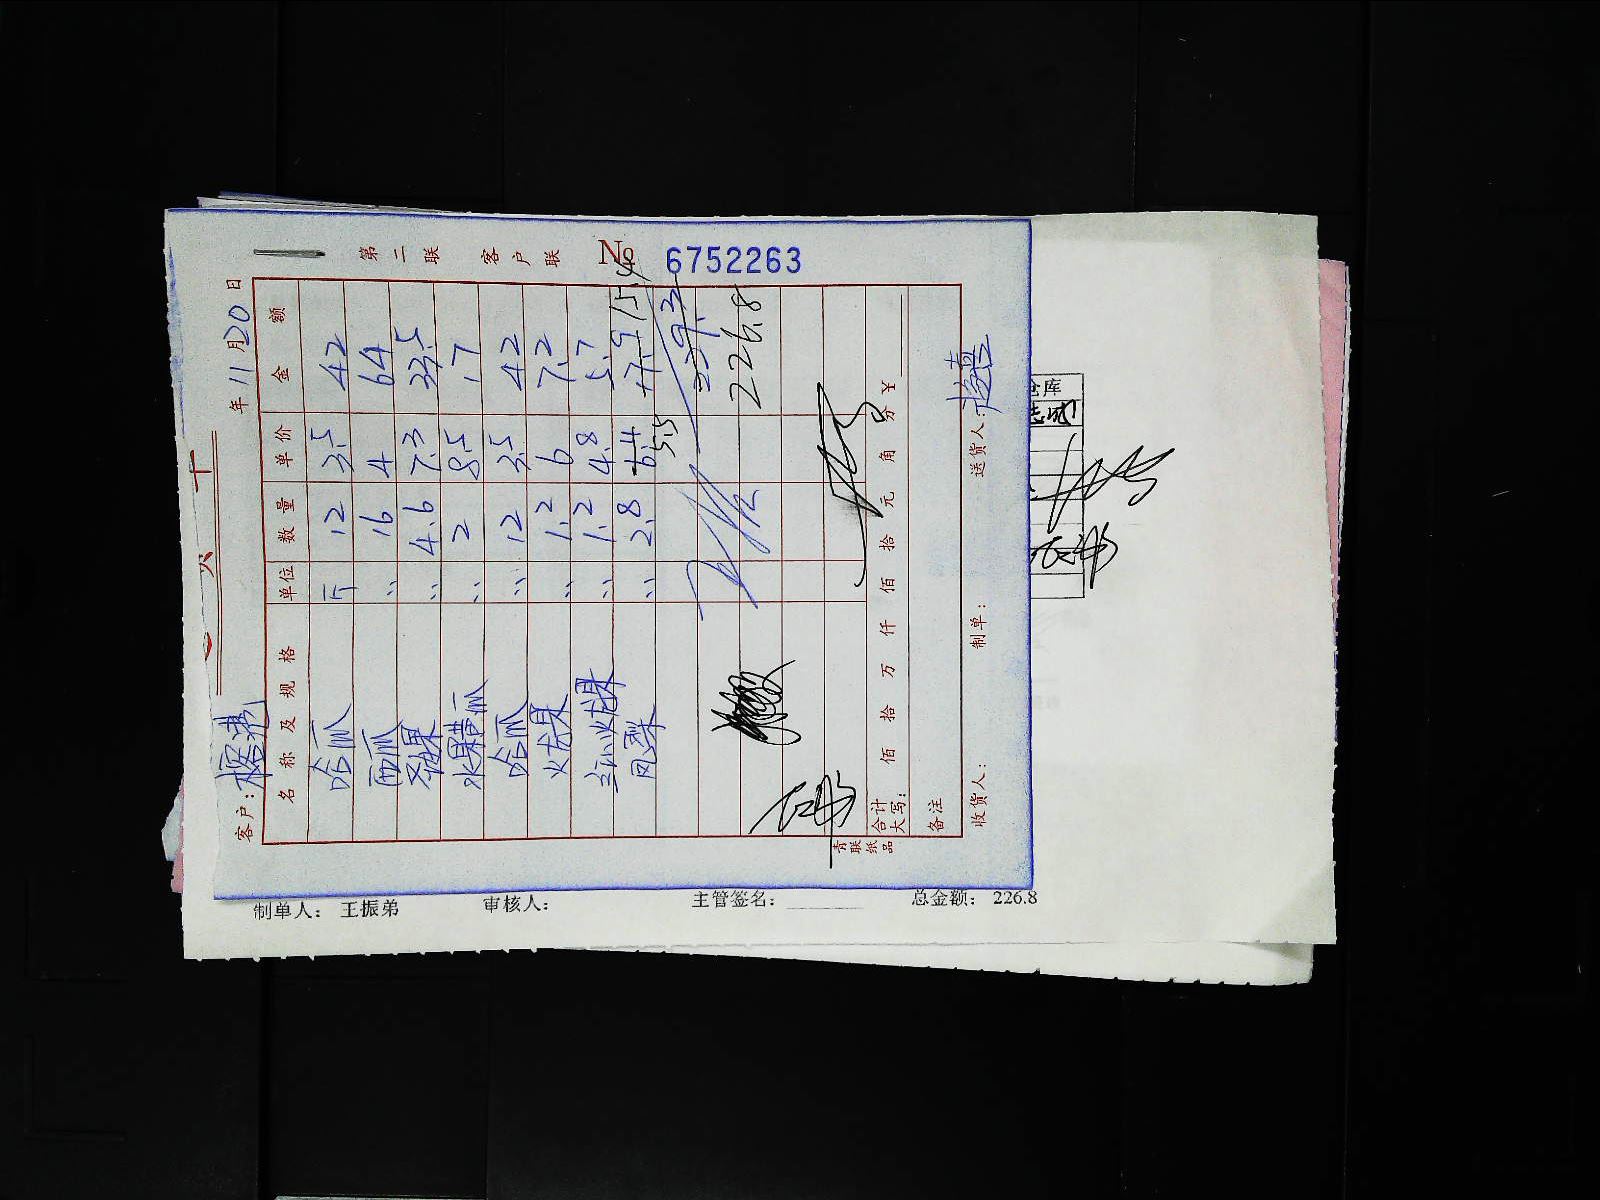 年11月20日
第二联 客户联 № 6752263
客户：
名称及规格 单位 数量 单价 金额
哈瓜 斤 12 3.5 42
西瓜 〃 16 4 64
果 〃 4.6 7.3 33.5
水果黄瓜 〃 2 8.5 17
哈瓜 〃 12 3.5 42
火龙果 〃 1.2 6 7.2
红心火龙果 〃 1.2 4.8 5.7
凤梨 〃 2.8 6.4 5.5 17.9 15.4
229.3
226.8
合计大写： 佰 拾 万 仟 佰 拾 元 角 分 ￥
备注
收货人： 制单： 送货人：
青联纸品
仓库
制单人： 王振弟 审核人： 主管签名： 总金额： 226.8